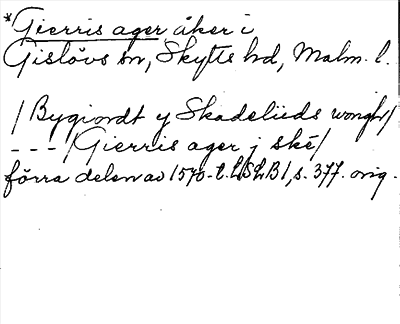 *Gierris ager åker i
Gislövs sn, Skytts hd, Malm. l.
/Bygiordt y Skadelüeds wongh/
---/Gierris ager j ské/
förra delen av 1570-t. LSLB1, s. 377. orig.